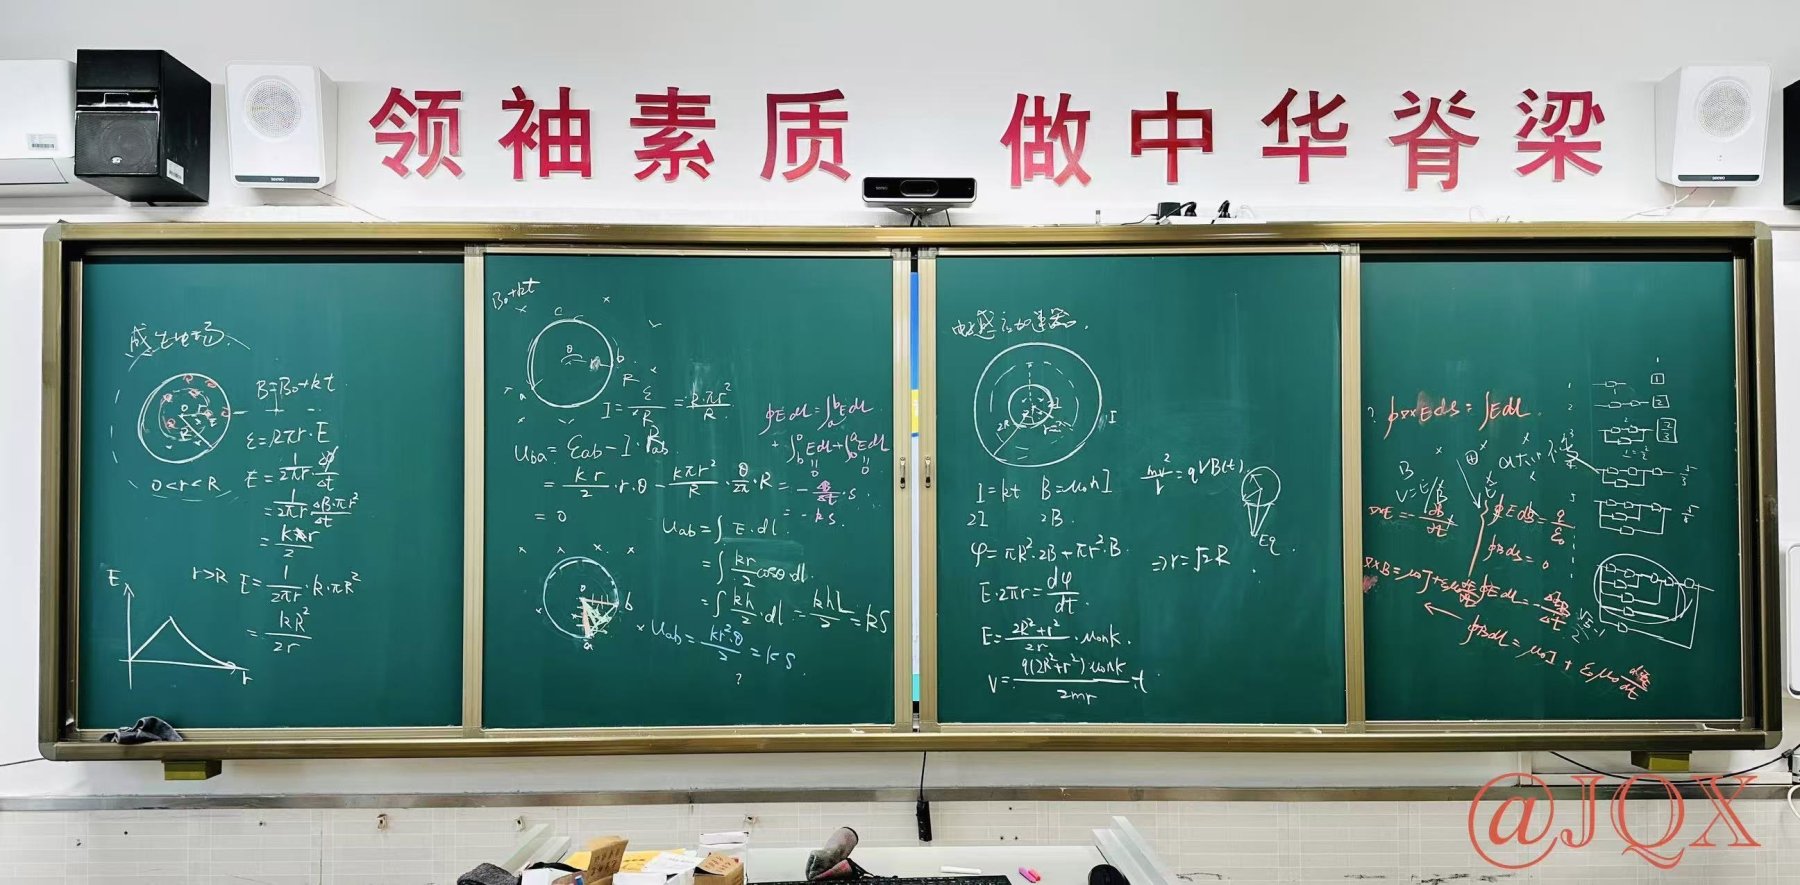 领袖素质 做中华脊梁
seewo
seewo
seewo
感生电场.
B=B₀+kt
ε=2πr·E
0<r<R
E=1/2πr·Δφ/Δt
=1/2πr ΔB·πr²/Δt
=kr/2
r>R E=1/2πr·k·πR²
=kR²/2r
E
r
B₀+kt
θ
b
R
a
I=ε/R=k·πr²/R
Uba=εab-I·Rab
=kr/2·r·θ-kπr²/R·θ/2π·R
=0
∮Edl=∫ₐᵇEdl
+∫Edl+∫Edl
0 0
=-ΔB/Δt·S
=-kS
Uab=∫E·dl
=∫kr/2 cosθ·dl
=∫kh/2·dl=khL/2=kS
b
a
Uab=kr²·θ/2=kS
?
电磁感应加速器.
2R
I
I=kt B=μ₀nI
2I 2B
φ=πR²·2B+πr²·B
E·2πr=dφ/dt
E=2R²+r²/2r·μ₀nk
V=q(2R²+r²)μ₀nk/2mr·t
mv²/r=qVB(t)
⇒r=√2R
Eq
? ∮∇×Eds=∫Edl
B
∇×E=-dB/dt
∮Eds=q/ε₀
∮Bds=0
∮Edl=-ΔB/Δt
∮Bdl=μ₀I+ε₀μ₀
1
2
@JQX